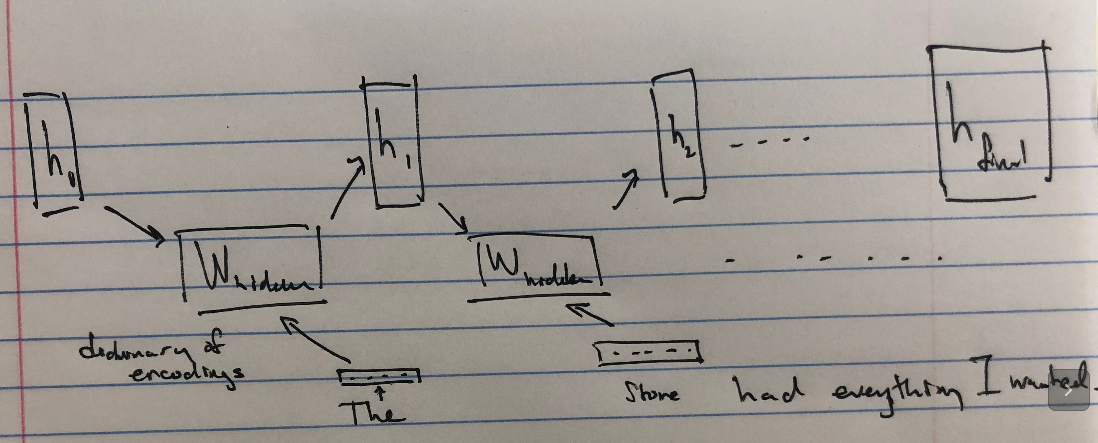 h₀ h₁ h₂ ---- h final
W hidden W hidden - - - - - -
dictionary of
encodings
The Store had everything I wanted.